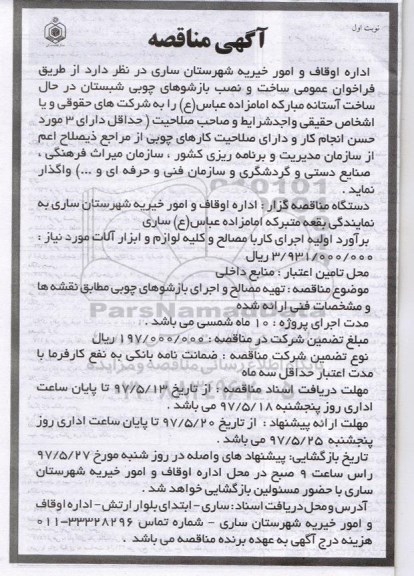 نوبت اول
آگهی مناقصه
اداره اوقاف و امور خیریه شهرستان ساری در نظر دارد از طریق
فراخوان عمومی ساخت و نصب بازشوهای چوبی شبستان در حال
ساخت آستانه مبارکه امامزاده عباس(ع) را به شرکت های حقوقی و یا
اشخاص حقیقی واجدشرایط و صاحب صلاحیت ( حداقل دارای ۳ مورد
حسن انجام کار و دارای صلاحیت کارهای چوبی از مراجع ذیصلاح اعم
از سازمان مدیریت و برنامه ریزی کشور ، سازمان میراث فرهنگی ،
صنایع دستی و گردشگری و سازمان فنی و حرفه ای و ...) واگذار
نماید .
دستگاه مناقصه گزار : اداره اوقاف و امور خیریه شهرستان ساری به
نمایندگی بقعه متبرکه امامزاده عباس(ع) ساری
برآورد اولیه اجرای کار با مصالح و کلیه لوازم و ابزار آلات مورد نیاز :
۳/۹۳۱/۰۰۰/۰۰۰ ریال
محل تامین اعتبار : منابع داخلی
موضوع مناقصه : تهیه مصالح و اجرای بازشوهای چوبی مطابق نقشه ها
و مشخصات فنی ارائه شده
مدت اجرای پروژه : ۱۰ ماه شمسی می باشد .
مبلغ تضمین شرکت در مناقصه : ۱۹۷/۰۰۰/۰۰۰ ریال
نوع تضمین شرکت مناقصه : ضمانت نامه بانکی به نفع کارفرما با
مدت اعتبار حداقل سه ماه
مهلت دریافت اسناد مناقصه : از تاریخ ۹۷/۵/۱۳ تا پایان ساعت
اداری روز پنجشنبه ۹۷/۵/۱۸ می باشد .
مهلت ارائه پیشنهاد : از تاریخ ۹۷/۵/۲۰ تا پایان ساعت اداری روز
پنجشنبه ۹۷/۵/۲۵ می باشد .
تاریخ بازگشایی: پیشنهاد های واصله در روز شنبه مورخ ۹۷/۵/۲۷
راس ساعت ۹ صبح در محل اداره اوقاف و امور خیریه شهرستان
ساری با حضور مسئولین بازگشایی خواهد شد .
آدرس و محل دریافت اسناد : ساری - ابتدای بلوار ارتش - اداره اوقاف
و امور خیریه شهرستان ساری - شماره تماس ۳۳۳۲۸۲۹۶-۰۱۱
هزینه درج آگهی به عهده برنده مناقصه می باشد .
ParsNamadData